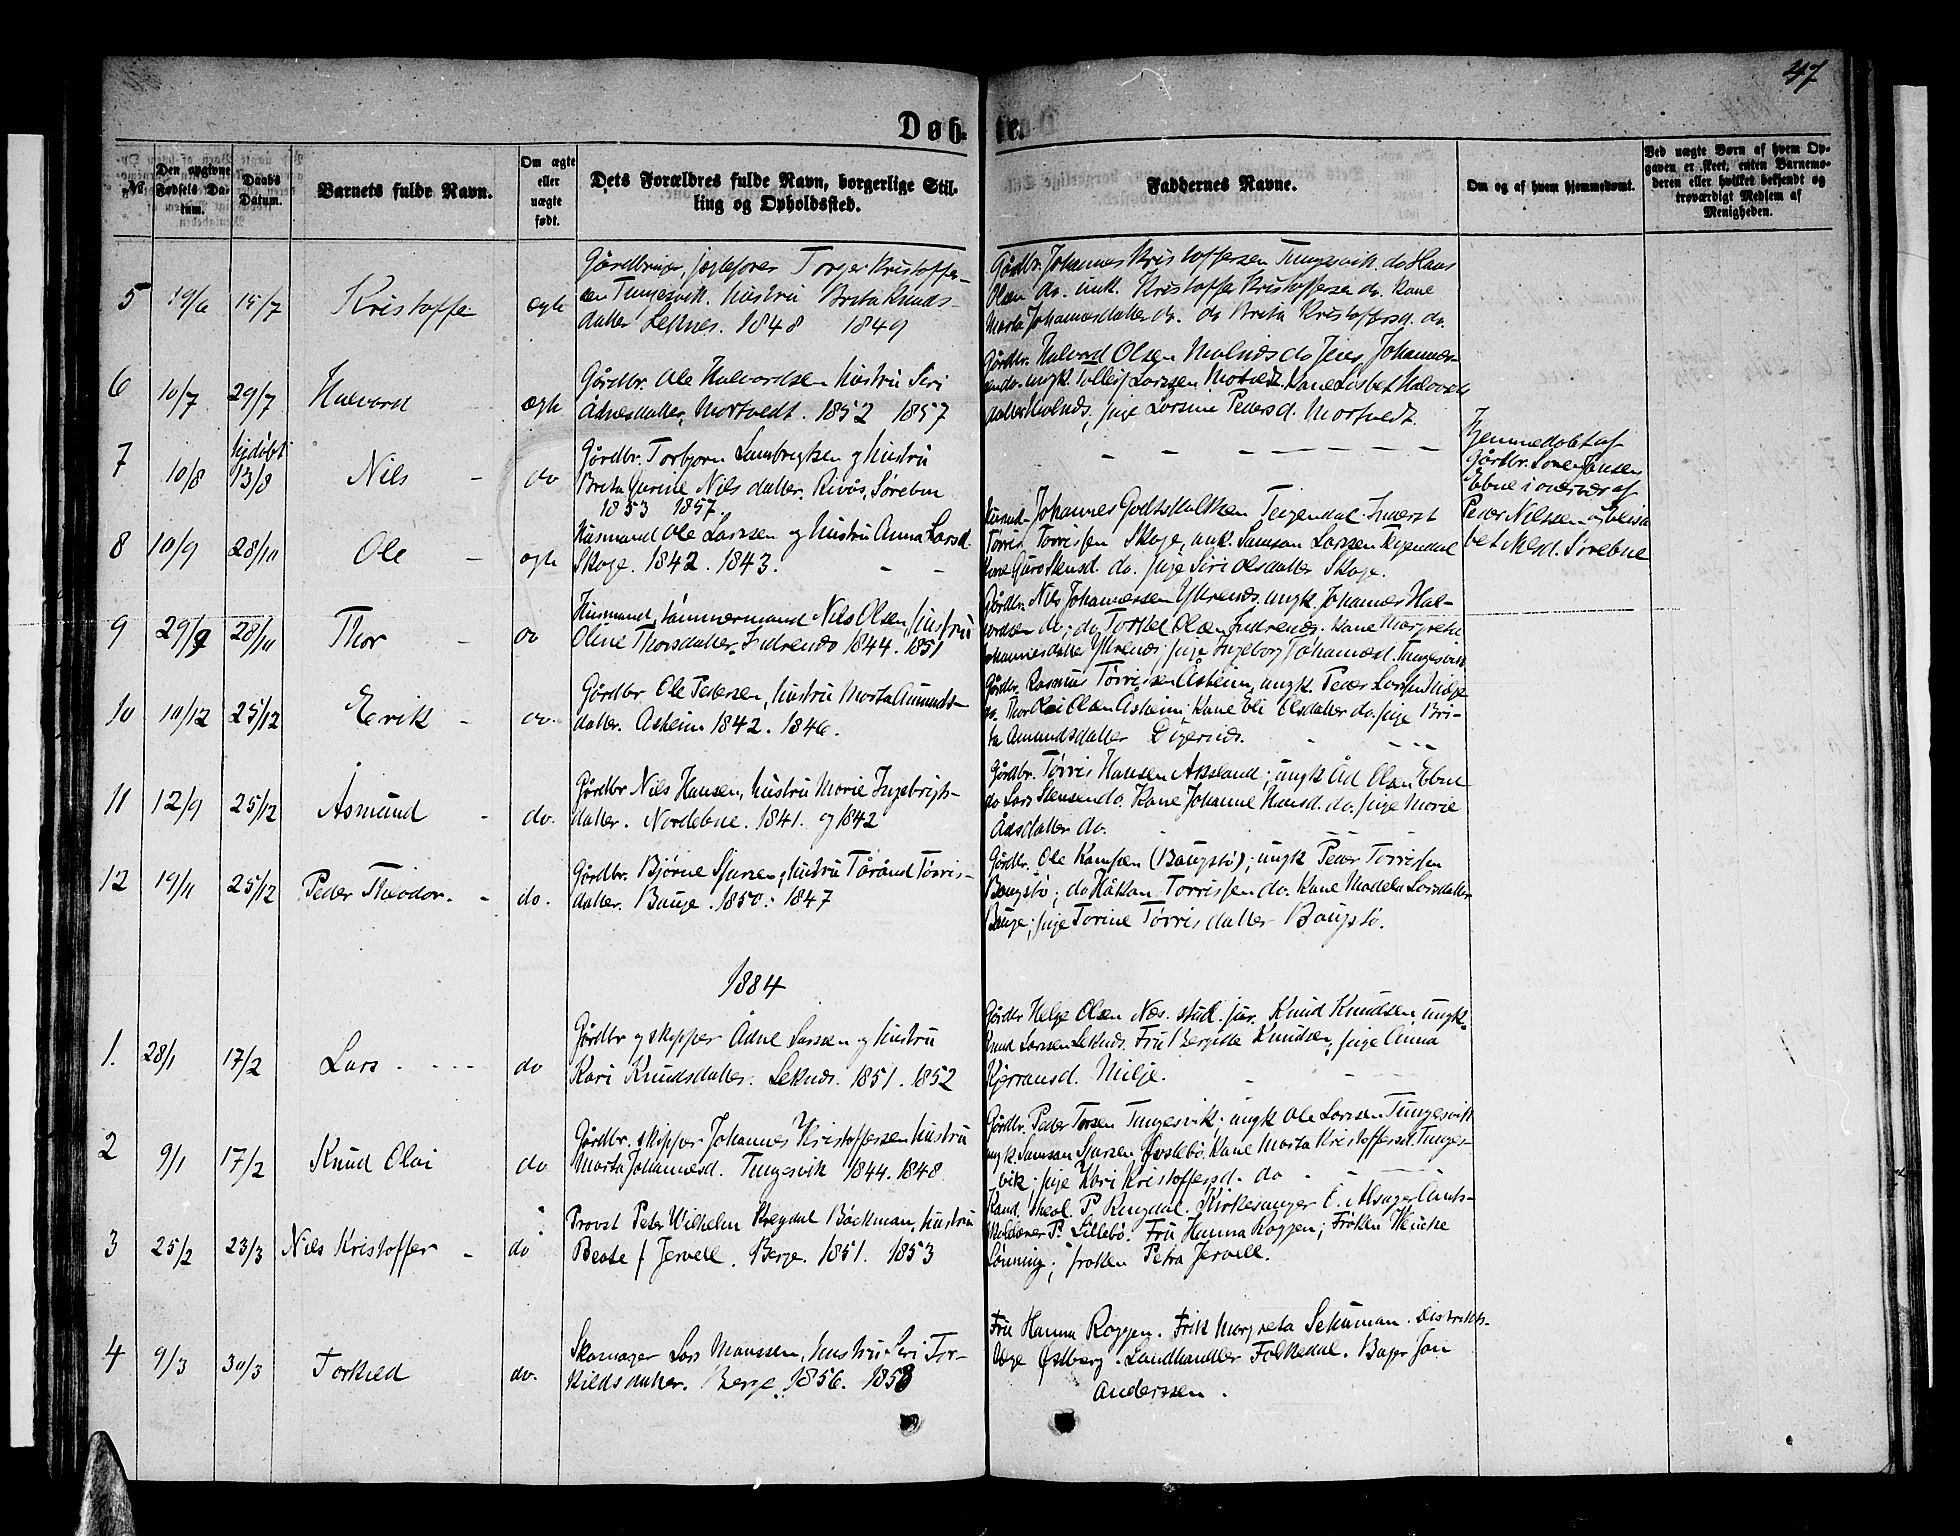 47
Døbte.
№
Den opgivne Fødsels Datum.
Daabs Datum.
Barnets fulde Navn.
Om ægte eller uægte født.
Dets Forældres fulde Navn, borgerlige Stilling og Opholdssted.
Faddernes Navne.
Om og af hvem hjemmedøbt.
Ved uægte Børn af hvem Opgaven er skeet, enten Barnemoderen eller hvilket bekjendt og troværdigt Medlem af Menigheden.
5 19/6 15/7 Kristoffer ægte
Gårdbruger, Torger Kristoffer-
sen Tungesvik. hustru Brita Knuds-
datter Leknes. 1848 1849
Gårdbr. Johannes Kristoffersen Tungesvik. do Hans
Olsen do. unk. Kristoffer Kristoffersen do. Kone
Marta Johannesdatter do. do Brita Kristoffersd. do.
6 10/7 29/7 Halvard ægte
Gårdbr. Ole Halvardsen hustru Siri
Ådnesdatter, Mortvedt. 1852 1857
Gårdbr. Halvard Olsen Molnæs do Jens Johannes-
sen do. ungk. Tolleif Larssen Motvedt. Kone Lisbet Halvards
datter Molnæs, pige Larsine Pedersd. Mortvedt.
7 10/8 hjdøbt 13/8 Nils - do
Gårdbr. Torbjørn Lambrigtsen og hustru
Brita Gurine Nilsdatter. Rivås, Sørebne
1853 1857.
Hjemmedøbt af
Gårdbr. Soren Jansen
Ebne i overvær af
Peder Nilssen og Elisa
bet Nilsd. Sørebne
8 10/9 28/10 Ole - ægte
Husmand Ole Larssen og hustru Anna Larsd.
Skoge. 1842. 1843. - -
Husmd. Johannes Godtskalksen Teigendal. Inderst
Tørris Tørrissen Skoge, unk. Samson Larssen Teigendal
Kone Guro Stensd. do. pige Siri Olsdatter Skoge.
9 29/9 28/10 Thor - do
Husmand, tømmermand Nils Olsen, hustru
Oline Thorsdatter. Indrenæs 1844. 1851
Gårdbr. Nils Johannessen Ytrenæs. ungk. Johannes Hal-
vordsen do; do Torkel Olsen Indrenæs. Kone Margreta
Johannesdatter Ytrenæs; pige Ingeborg Johannesd. Tungesvik
10 10/12 25/12 Eerik - do.
Gårdbr Ole Pedersen, hustru Marta Amunds-
datter. Asheim 1842. 1846.
Gårdbr. Rasmus Tørrissen Åsheim, ungk. Peder Larssen Milje
do. Thor Olai Olsen Åsheim; Kone Eli Olsdatter do. pige Bri-
ta Amundsdatter Digernæs.
11 12/9 25/12 Åsmund - do.
Gårdbr Nils Hansen, hustru Marie Ingebrigts-
datter. Nordebne. 1841. og 1842
Gårdbr. Tørris Hansen Aksland; ungk Åd Olsen Ebne
do Lars Stensen do. Kone Johanne Hansd. do. pige Marie
Åsdatter do.
12 19/11 25/12 Peder Theodor. - do.
Gårdbr. Bjørne Sjursen, hustru Tårånd Tørris-
datter. Bauge. 1850. 1847
Gårdbr. Ole Hansen (Baugstø); ungk Peder Tørrissen
Baugstø; do Håkon Tørrissen do. Kone Madela Larsdatter
Bauge; pige Torine Tørrisdatter Baugstø.
1884
1. 28/1 17/2 Lars . - - - do
Gårdbr og skipper Ådne Larssen og hustru
Kari Knudsdatter. Leknæs. 1851. 1852
Gårdbr Helge Olsen Næs. stud. jur. Knud Knudsen ungk.
Knud Larssen Leknæs. Fru Bergitte Knudsen; pige Anna
Kjerransd. Milje.
2 9/1 17/2 Knud Olai do
Gårdbr. skipper Johannes Kristoffersen hustru
Marta Johannesd. Tungesvik 1844. 1848
Gårdbr. Peder Torsen Tungesvik; ungk Ole Larssen Tungesvik
ungk Samson Sjursen Øvslebø. Kone Marta Kristoffersd. Tunges-
vik; pige Kari Kristoffersd. do
3 25/2 23/3 Nils Kristoffer - do
Provst Peter Wilhelm Kreydal Bøckman, hustru
Beate f Jervell. Berge. 1851. 1853
Kand. theol. P. Ringdal. Kirkesanger O. Alsager Amts-
skolelærer P. Lillebø. Fru Hanna Roggen; Frøken
Lønning; frøken Petra Jervell.
4 9/3 30/3 Torkild do.
Skomager Lars Monssen, hustru Siri Tor-
kildsdatter. Berge. 1856. 1858
Fru Hanna Roggen. Frøk Margreta Schuman. Distrikts-
læge Østberg. Landhandler Folkedal. Bager Jon
Anderssen.